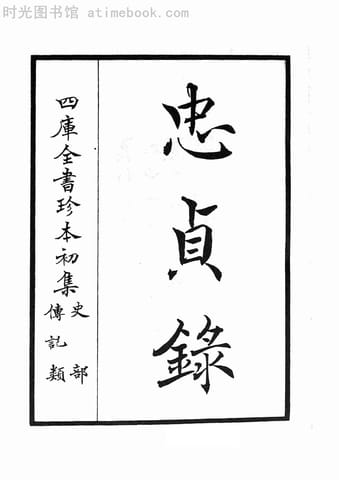 时光图书馆 - atimebook.com
忠貞錄
四庫全書珍本初集
史部
傳記類